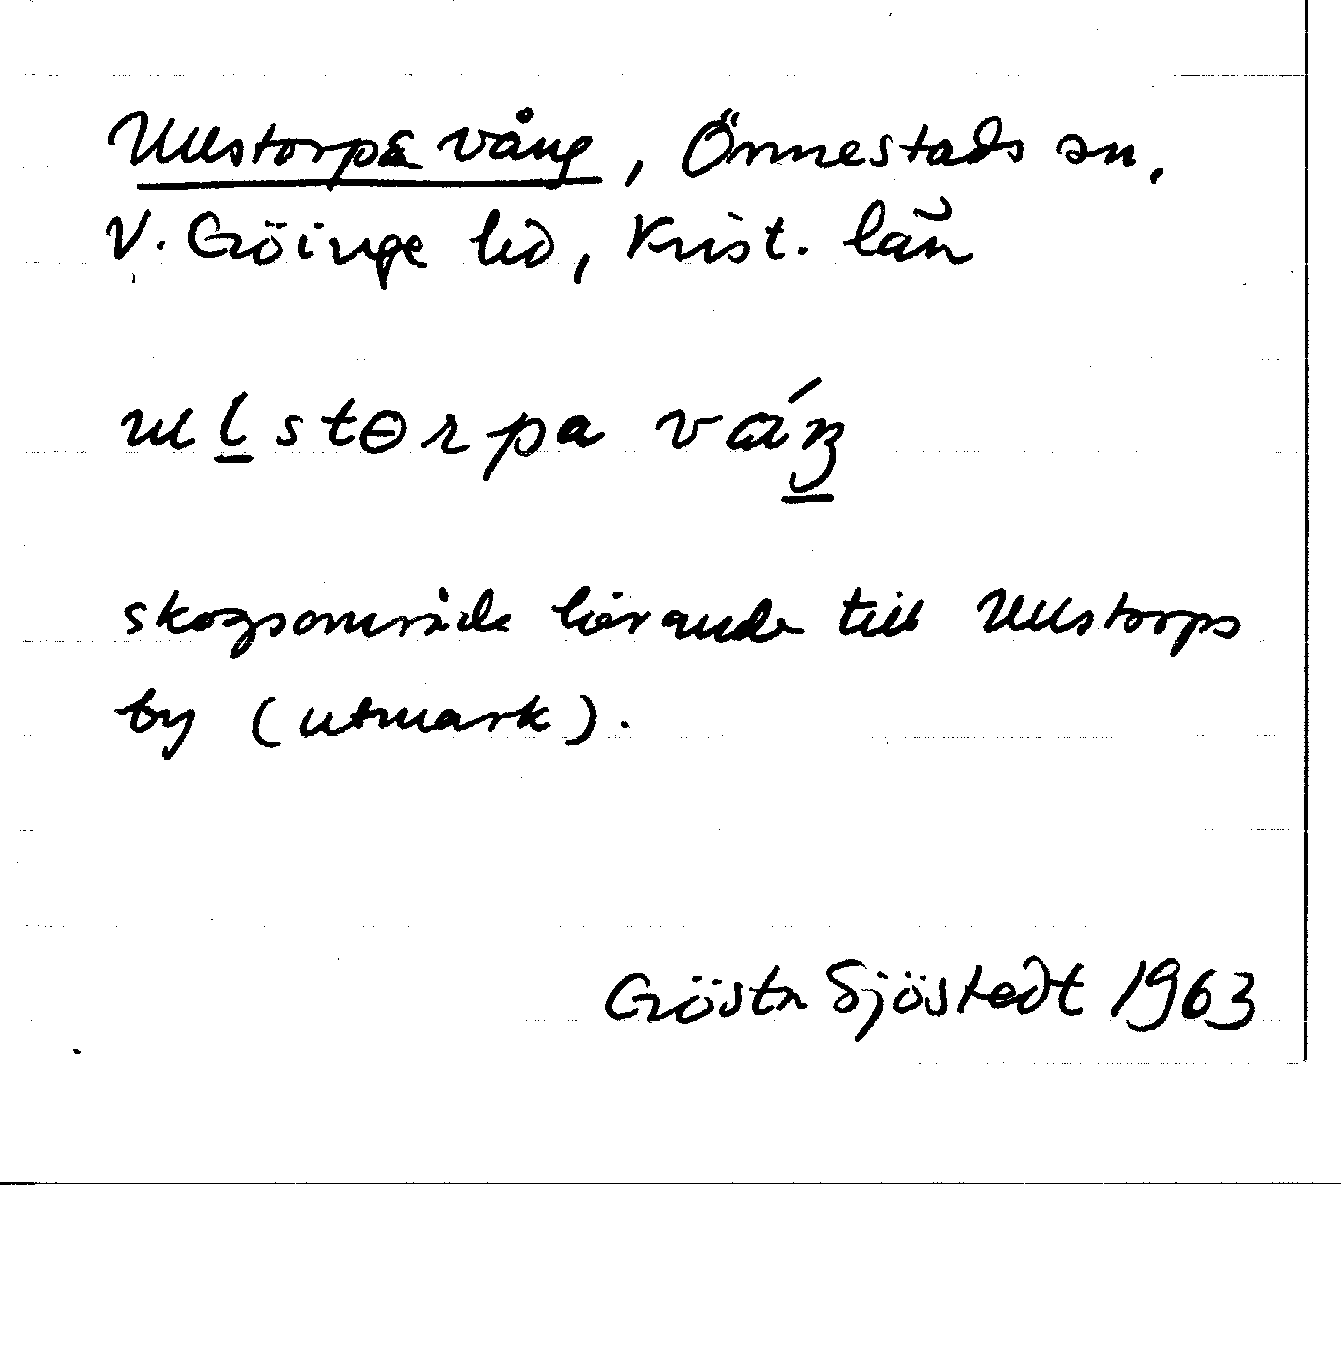 Ullstorpa vång, Önnestads sn,
V. Göinge hd, Krist. län
ulstɵrpa váŋ
skogsområde hörande till Ullstorps
by (utmark).
Gösta Sjöstedt 1963